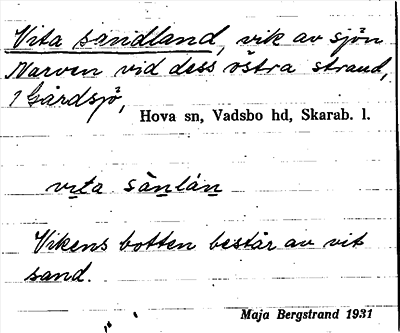 Vita sandland, vik av sjön
Narven vid dess östra strand,
i Gårdsjö,
Hova sn, Vadsbo hd, Skarab. l.
vi̲ta sànlán̲
Vikens botten består av vit
sand.
Maja Bergstrand 1931